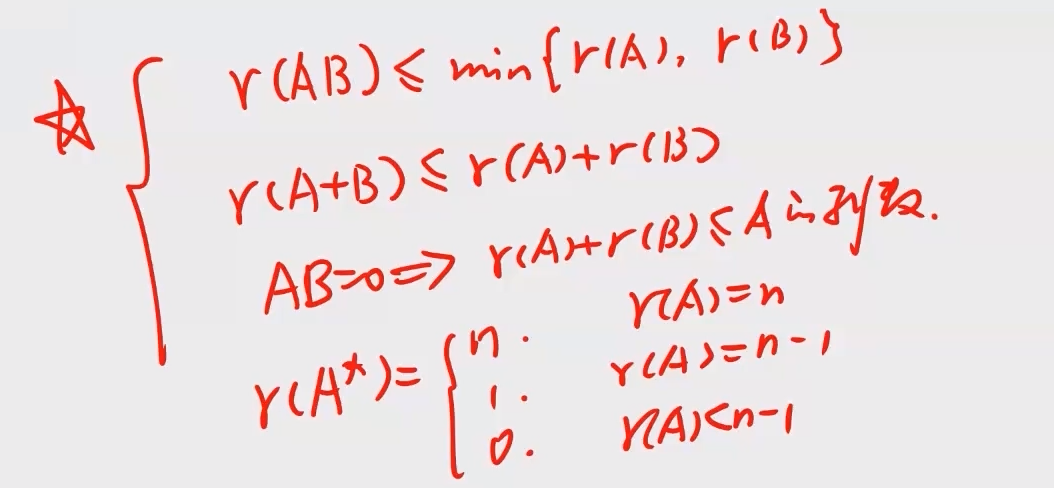 ☆ r(AB)≤min{r(A), r(B)}
r(A+B)≤r(A)+r(B)
AB=0⇒r(A)+r(B)≤A的列数.
r(A*)={n. r(A)=n
1. r(A)=n-1
0. r(A)<n-1